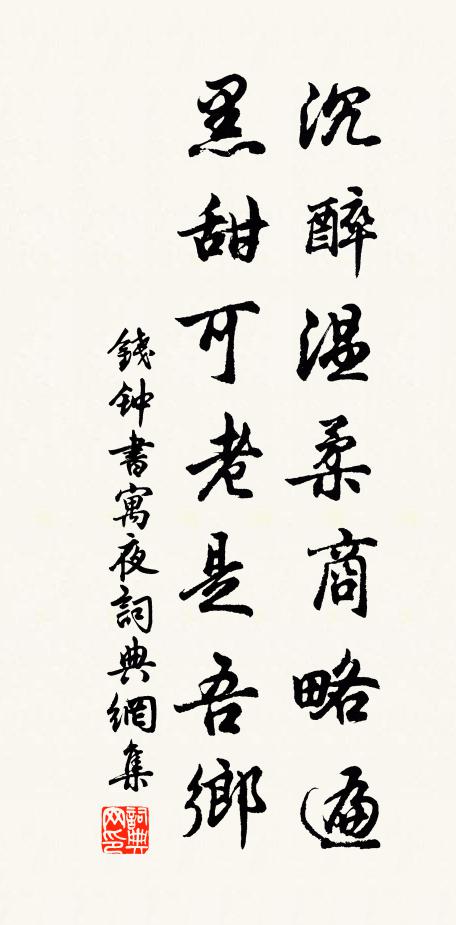 沉醉温柔商略遍
黑甜可老是吾鄉
錢钟書寓夜詞典網集
詞典网印